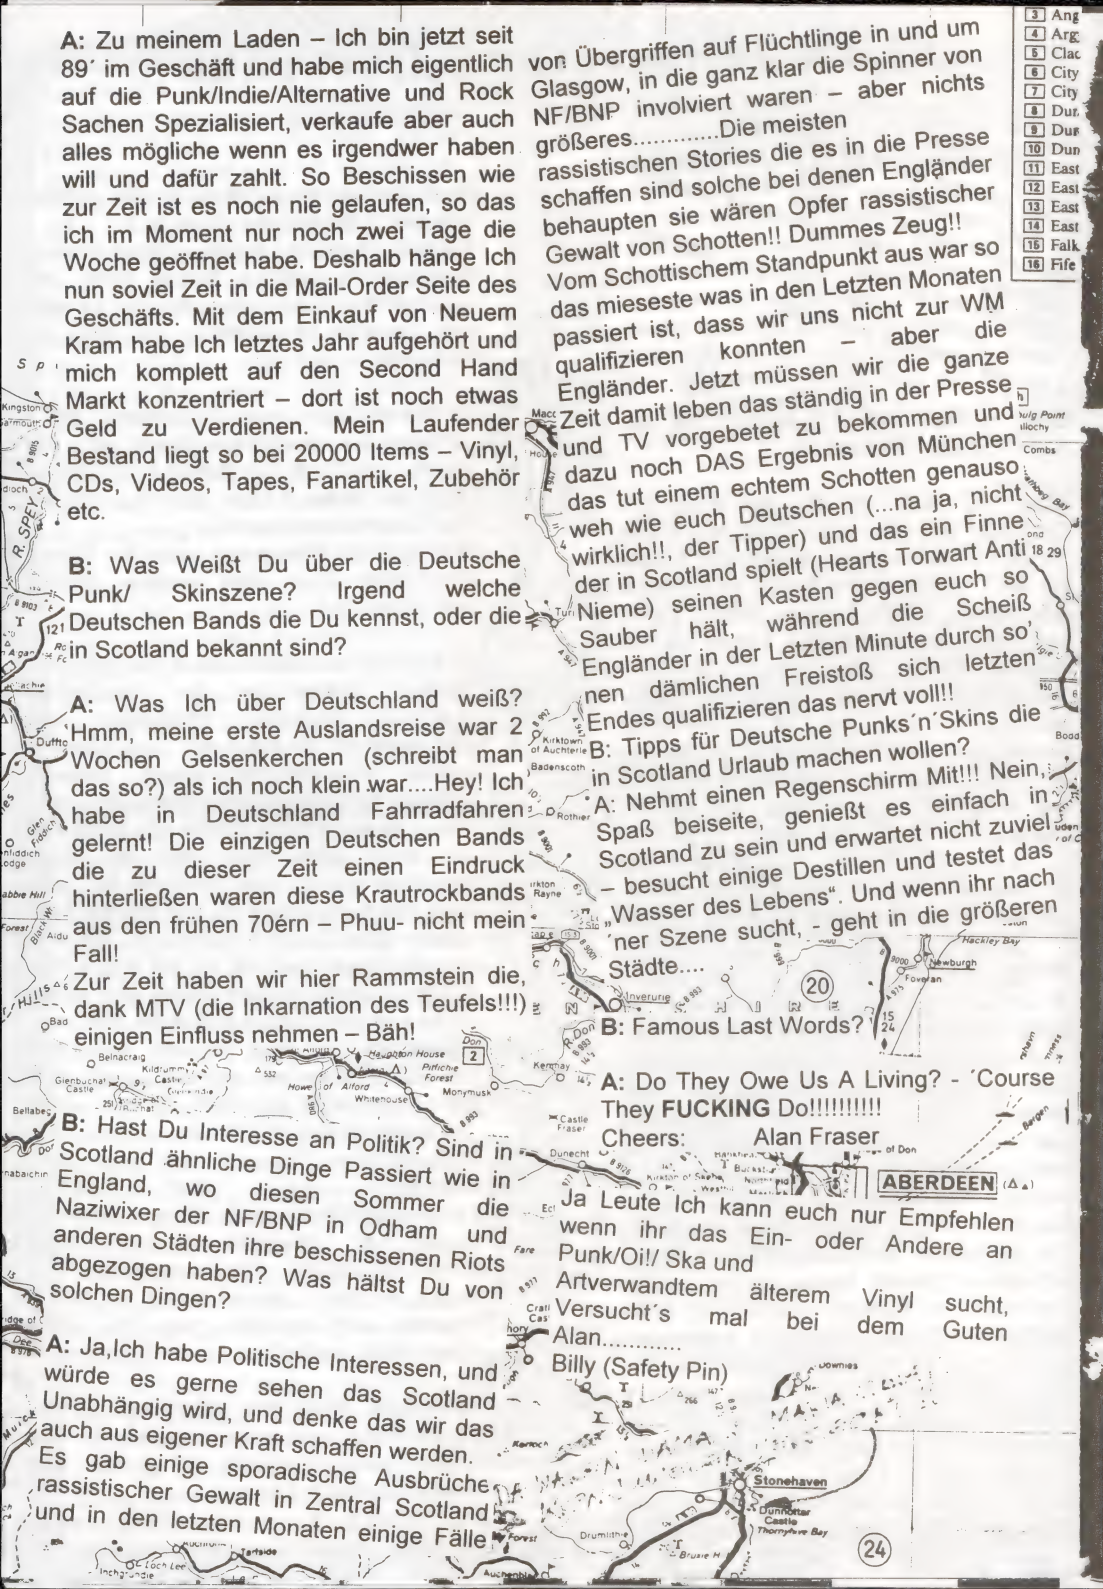 A: Zu meinem Laden – Ich bin jetzt seit
89´ im Geschäft und habe mich eigentlich
auf die Punk/Indie/Alternative und Rock
Sachen Spezialisiert, verkaufe aber auch
alles mögliche wenn es irgendwer haben
will und dafür zahlt. So Beschissen wie
zur Zeit ist es noch nie gelaufen, so das
ich im Moment nur noch zwei Tage die
Woche geöffnet habe. Deshalb hänge Ich
nun soviel Zeit in die Mail-Order Seite des
Geschäfts. Mit dem Einkauf von Neuem
Kram habe Ich letztes Jahr aufgehört und
mich komplett auf den Second Hand
Markt konzentriert – dort ist noch etwas
Geld zu Verdienen. Mein Laufender
Bestand liegt so bei 20000 Items – Vinyl,
CDs, Videos, Tapes, Fanartikel, Zubehör
etc.
B: Was Weißt Du über die Deutsche
Punk/ Skinszene? Irgend welche
Deutschen Bands die Du kennst, oder die
in Scotland bekannt sind?
A: Was Ich über Deutschland weiß?
Hmm, meine erste Auslandsreise war 2
Wochen Gelsenkerchen (schreibt man
das so?) als ich noch klein war....Hey! Ich
habe in Deutschland Fahrradfahren
gelernt! Die einzigen Deutschen Bands
die zu dieser Zeit einen Eindruck
hinterließen waren diese Krautrockbands
aus den frühen 70érn – Phuu- nicht mein
Fall!
Zur Zeit haben wir hier Rammstein die,
dank MTV (die Inkarnation des Teufels!!!)
einigen Einfluss nehmen – Bäh!
B: Hast Du Interesse an Politik? Sind in
Scotland ähnliche Dinge Passiert wie in
England, wo diesen Sommer die
Naziwixer der NF/BNP in Odham und
anderen Städten ihre beschissenen Riots
abgezogen haben? Was hältst Du von
solchen Dingen?
A: Ja,Ich habe Politische Interessen, und
würde es gerne sehen das Scotland
Unabhängig wird, und denke das wir das
auch aus eigener Kraft schaffen werden.
Es gab einige sporadische Ausbrüche
rassistischer Gewalt in Zentral Scotland
und in den letzten Monaten einige Fälle
von Übergriffen auf Flüchtlinge in und um
Glasgow, in die ganz klar die Spinner von
NF/BNP involviert waren – aber nichts
größeres............Die meisten
rassistischen Stories die es in die Presse
schaffen sind solche bei denen Engländer
behaupten sie wären Opfer rassistischer
Gewalt von Schotten!! Dummes Zeug!!
Vom Schottischem Standpunkt aus war so
das mieseste was in den Letzten Monaten
passiert ist, dass wir uns nicht zur WM
qualifizieren konnten – aber die
Engländer. Jetzt müssen wir die ganze
Zeit damit leben das ständig in der Presse
und TV vorgebetet zu bekommen und
dazu noch DAS Ergebnis von München
das tut einem echtem Schotten genauso
weh wie euch Deutschen (...na ja, nicht
wirklich!!, der Tipper) und das ein Finne
der in Scotland spielt (Hearts Torwart Anti
Nieme) seinen Kasten gegen euch so
Sauber hält, während die Scheiß
Engländer in der Letzten Minute durch so'
nen dämlichen Freistoß sich letzten
Endes qualifizieren das nervt voll!!
B: Tipps für Deutsche Punks´n´Skins die
in Scotland Urlaub machen wollen?
A: Nehmt einen Regenschirm Mit!!! Nein,
Spaß beiseite, genießt es einfach in
Scotland zu sein und erwartet nicht zuviel
– besucht einige Destillen und testet das
„Wasser des Lebens“. Und wenn ihr nach
'ner Szene sucht, - geht in die größeren
Städte....
B: Famous Last Words?
A: Do They Owe Us A Living? - ´Course
They FUCKING Do!!!!!!!!!!
Cheers: Alan Fraser
ABERDEEN
Ja Leute Ich kann euch nur Empfehlen
wenn ihr das Ein- oder Andere an
Punk/Oi!/ Ska und
Artverwandtem älterem Vinyl sucht,
Versucht´s mal bei dem Guten
Alan............
Billy (Safety Pin)
3 Ang
4 Arg
5 Clac
6 City
7 City
8 Dur
9 Dur
10 Dun
11 East
12 East
13 East
14 East
15 Falk
16 Fife
Kingston
R. SPEY
B 9015
B 9103
121
Glen Fiddich
Kirktown of Auchterle
Badenscoth
Rothie
Combs
18 29
Hackley Bay
Newburgh
Foveran
15
24
20
Inverurie
Belnacraig
Kildrummy Castle
Glenbuchat Castle
Howe of Alford
Haughton House
Pitfichie Forest
Whitehouse
Monymusk
Kemnay
Don
2
Castle Fraser
Dunecht
B 9126
B 993
Bergen
Bellabeg
Downies
Stonehaven
Dunnottar Castle
Thornyhive Bay
Drumlithie
24
Loch Lee
Tarfside
Inchgrundle